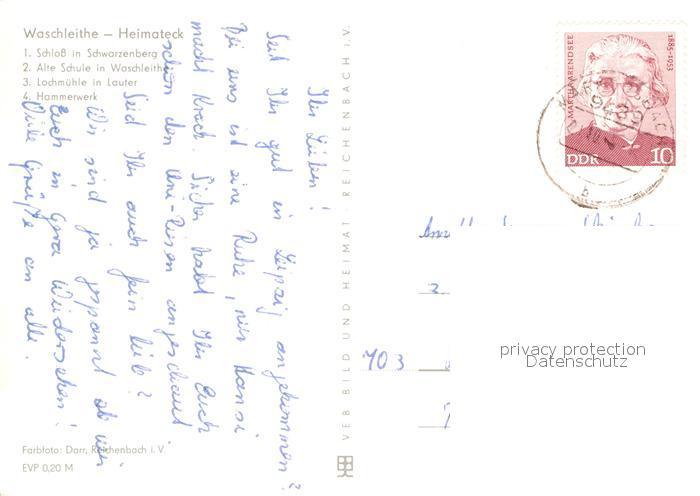 Waschleithe – Heimateck
1. Schloß in Schwarzenberg
2. Alte Schule in Waschleithe
3. Lochmühle in Lauter
4. Hammerwerk
Ihr Lieben!
Seid Ihr gut in Leipzig angekommen?
Bei uns ist eine Ruhe, nur Hansi
macht Krach. Sicher habt Ihr Euch
schon den Uni-Riesen angeschaut
Seid Ihr auch fein lieb?
Wir sind ja gespannt ob wir
Euch in Gera Wiedersehen!
Viele Grüße an alle.
Farbfoto: Darr, Reichenbach i. V.
EVP 0,20 M
VEB BILD UND HEIMAT REICHENBACH i. V.
MARTHA ARENDSEE
1885-1953
DDR 10
703
privacy protection
Datenschutz